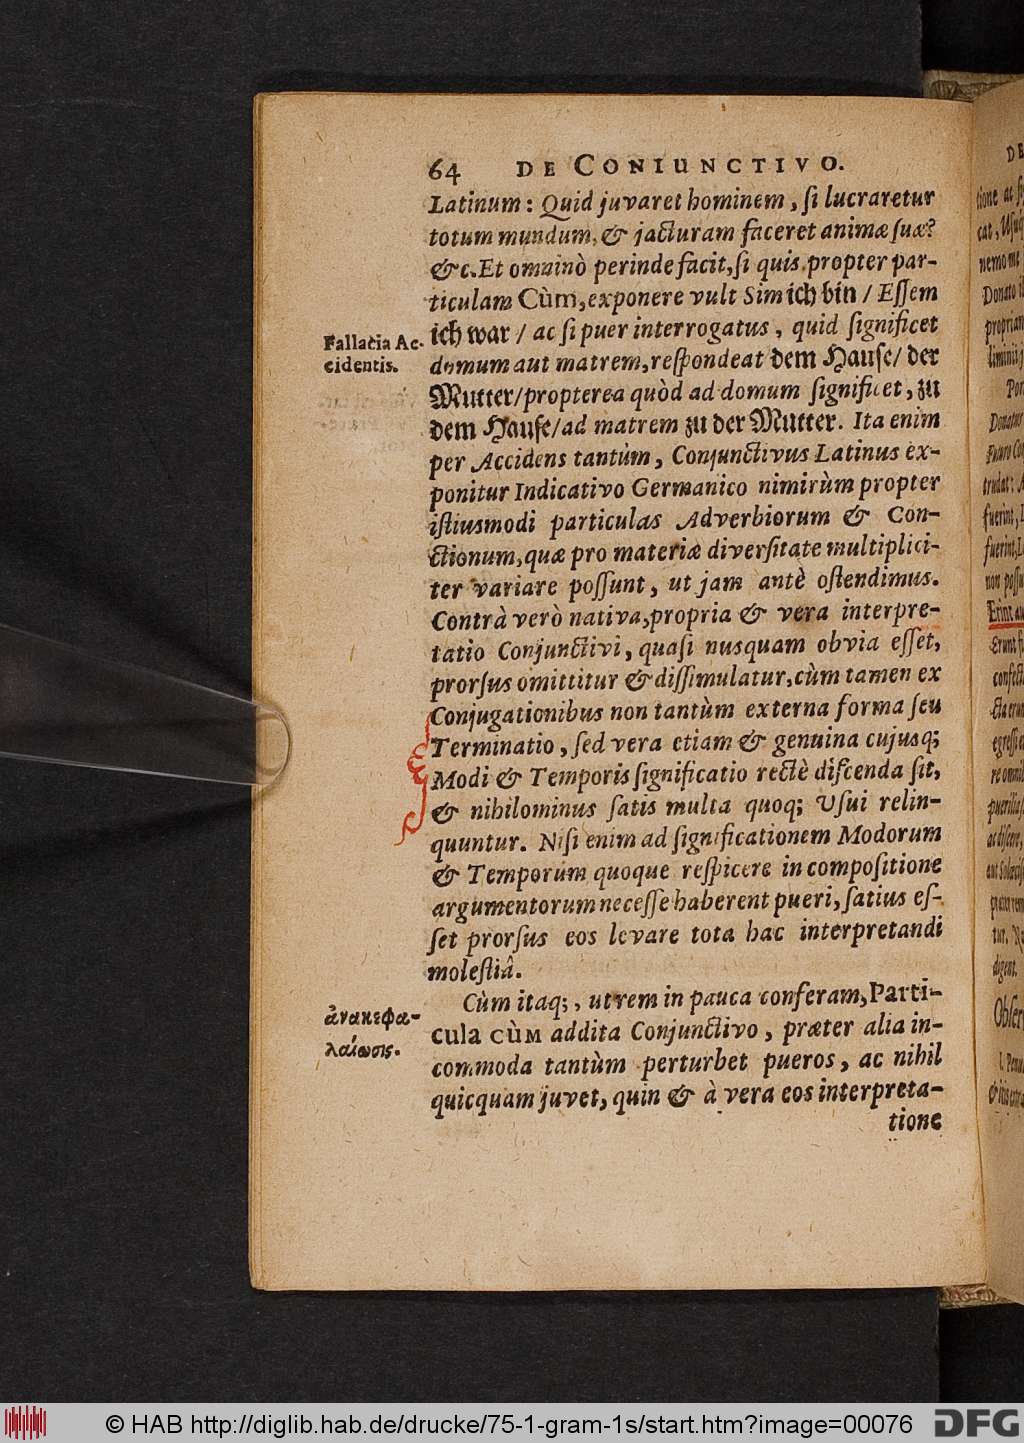 64 DE CONIUNCTIVO.
Latinum: Quid juvaret hominem, ſi lucraretur
totum mundum, & jacturam faceret animæ ſuæ?
&c. Et omninò perinde facit, ſi quis propter par-
ticulam Cùm, exponere vult Sim ich bin / Eſſem
ich war / ac ſi puer interrogatus, quid ſignificet
domum aut matrem, reſpondeat dem Hauſe / der
Mutter / propterea quòd ad domum ſignificet, zu
dem Hauſe / ad matrem zu der Mutter. Ita enim
per Accidens tantùm, Conjunctivus Latinus ex-
ponitur Indicativo Germanico nimirùm propter
iſtiusmodi particulas Adverbiorum & Con-
ctionum, quæ pro materiæ diverſitate multiplici-
ter variare poſſunt, ut jam antè oſtendimus.
Contrà verò nativa, propria & vera interpre-
tatio Conjunctivi, quaſi nusquam obvia eſſet,
prorſus omittitur & diſſimulatur, cùm tamen ex
Conjugationibus non tantùm externa forma ſeu
Terminatio, ſed vera etiam & genuina cujusq;
Modi & Temporis ſignificatio rectè diſcenda ſit,
& nihilominus ſatis multa quoq; Uſui relin-
quuntur. Niſi enim ad ſignificationem Modorum
& Temporum quoque reſpicere in compoſitione
argumentorum neceſſe haberent pueri, ſatius eſ-
ſet prorſus eos levare tota hac interpretandi
moleſtiâ.
Cùm itaq;, ut rem in pauca conferam, Parti-
cula CÙM addita Conjunctivo, præter alia in-
commoda tantùm perturbet pueros, ac nihil
quicquam juvet, quin & à vera eos interpreta-
tione
Fallacia Ac-
cidentis.
ἀνακεφα-
λαίωσις.
DE
tione at
cat,
nemo me
Donato
proprian
Donatus
trudat:
fuerint,
fuerint,
non poſſu
Erint au
Erunt
re omni
puerilia
Obſer
© HAB http://diglib.hab.de/drucke/75-1-gram-1s/start.htm?image=00076 DFG